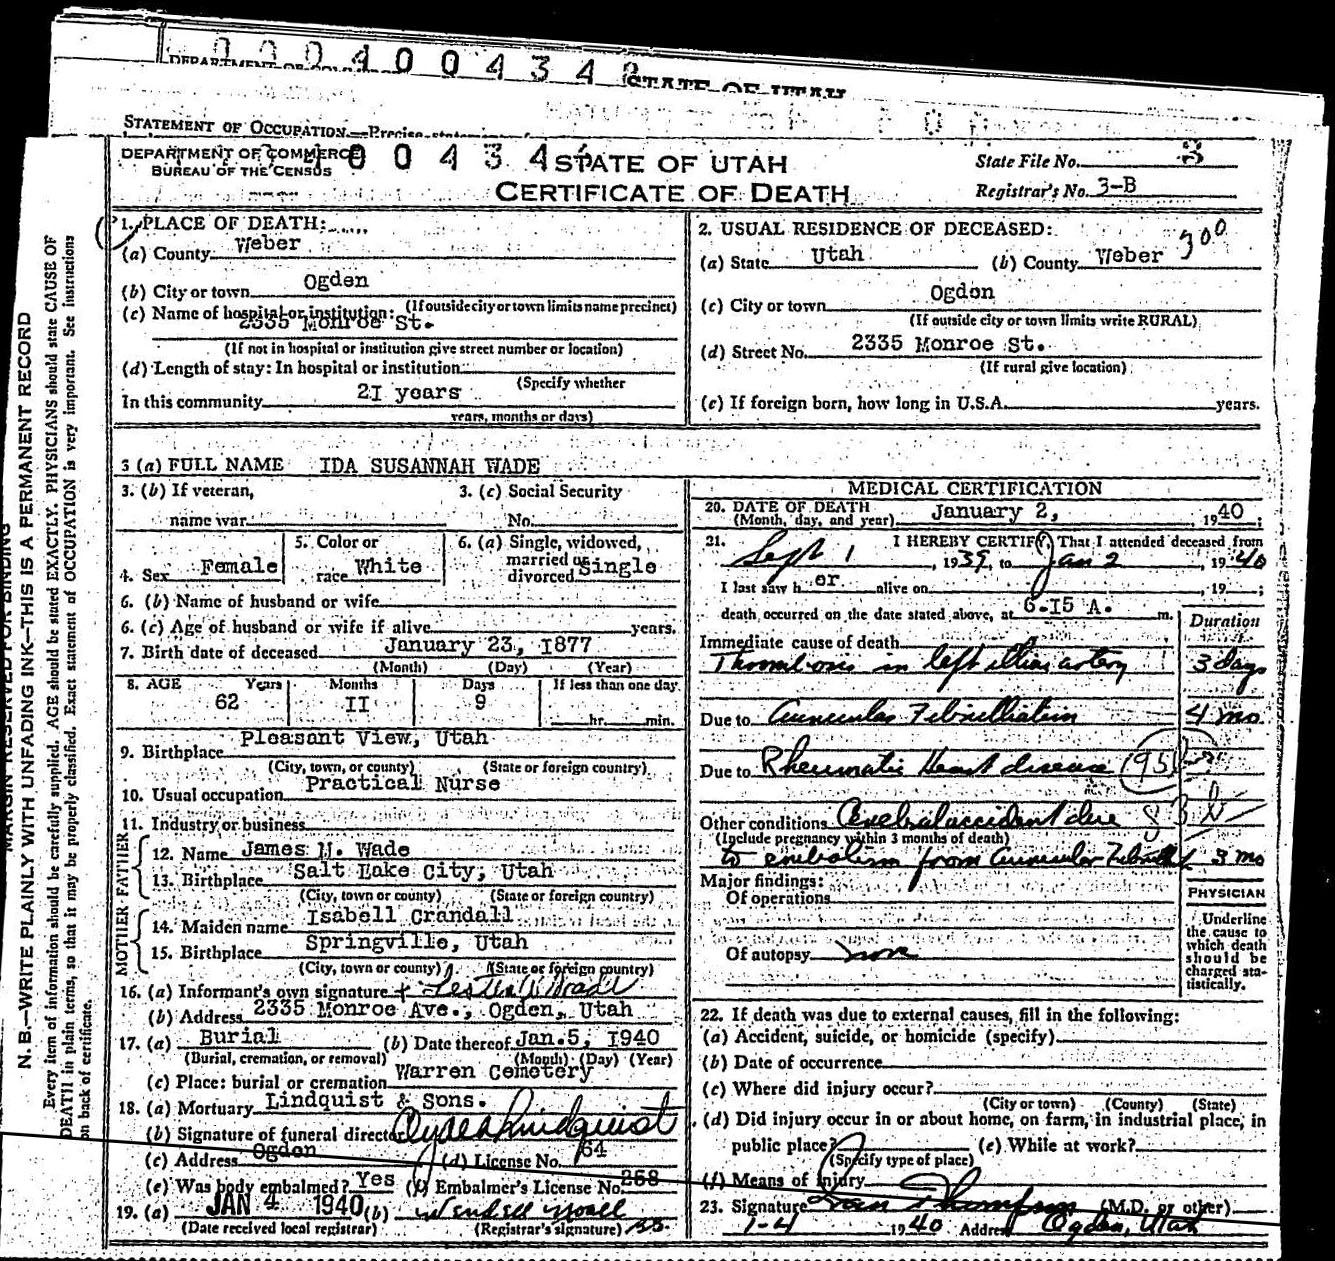 0 0 0 4 0 0 4 3 4 8
STATE OF UTAH
STATEMENT OF OCCUPATION.—Precise statement of
DEPARTMENT OF COMMERCE
BUREAU OF THE CENSUS
0 0 4 3 4
STATE OF UTAH
CERTIFICATE OF DEATH
State File No. 3
Registrar's No. 3-B
MARGIN RESERVED FOR BINDING
N. B.—WRITE PLAINLY WITH UNFADING INK—THIS IS A PERMANENT RECORD
Every item of information should be carefully supplied. AGE should be stated EXACTLY. PHYSICIANS should state CAUSE OF
DEATH in plain terms, so that it may be properly classified. Exact statement of OCCUPATION is very important. See instructions
on back of certificate.
1. PLACE OF DEATH:
(a) County Weber
(b) City or town Ogden
(If outside city or town limits name precinct)
(c) Name of hospital or institution:
2335 Monroe St.
(If not in hospital or institution give street number or location)
(d) Length of stay: In hospital or institution
(Specify whether
In this community 2I years
years, months or days)
2. USUAL RESIDENCE OF DECEASED:
300
(a) State Utah (b) County Weber
(c) City or town Ogden
(If outside city or town limits write RURAL)
(d) Street No. 2335 Monroe St.
(If rural give location)
(e) If foreign born, how long in U.S.A. years.
3 (a) FULL NAME IDA SUSANNAH WADE
3. (b) If veteran,
name war
3. (c) Social Security
No.
4. Sex Female
5. Color or
race White
6. (a) Single, widowed,
married or
divorced Single
6. (b) Name of husband or wife
6. (c) Age of husband or wife if alive years.
7. Birth date of deceased January 23, I877
(Month) (Day) (Year)
8. AGE Years Months Days If less than one day
62 II 9 hr. min.
9. Birthplace Pleasant View, Utah
(City, town, or county) (State or foreign country)
10. Usual occupation Practical Nurse
11. Industry or business
FATHER
12. Name James M. Wade
13. Birthplace Salt Lake City, Utah
(City, town or county) (State or foreign country)
MOTHER
14. Maiden name Isabell Crandall
15. Birthplace Springville, Utah
(City, town or county) (State or foreign country)
16. (a) Informant's own signature Lester W Wade
(b) Address 2335 Monroe Ave., Ogden, Utah
17. (a) Burial (b) Date thereof Jan.5, I940
(Burial, cremation, or removal) (Month) (Day) (Year)
(c) Place: burial or cremation Warren Cemetery
18. (a) Mortuary Lindquist & Sons.
(b) Signature of funeral director Clyde A Lindquist
(c) Address Ogden (d) License No. 64
(e) Was body embalmed? Yes (f) Embalmer's License No. 268
19. (a) JAN 4 1940 (b) Wendell
(Date received local registrar) (Registrar's signature)
MEDICAL CERTIFICATION
20. DATE OF DEATH
(Month, day, and year) January 2, 1940;
21. I HEREBY CERTIFY That I attended deceased from
Sept 1, 1939, to Jan 2, 1940
I last saw her alive on , 19 ;
death occurred on the date stated above, at 6-I5 A. m.
Duration
Immediate cause of death
Thrombosis in left illiac artery 3 days
Due to Auricular Fibrillation 4 mo
Due to Rheumatic Heart disease 95
Other conditions Cerebral accident due 83b
(Include pregnancy within 3 months of death)
to embolism from Auricular Fibrill 3 mo
Major findings:
Of operations
Of autopsy none
PHYSICIAN
Underline
the cause to
which death
should be
charged sta-
tistically.
22. If death was due to external causes, fill in the following:
(a) Accident, suicide, or homicide (specify)
(b) Date of occurrence
(c) Where did injury occur?
(City or town) (County) (State)
(d) Did injury occur in or about home, on farm, in industrial place, in
public place? (e) While at work?
(Specify type of place)
(f) Means of injury
23. Signature Ivan Thompson (M.D. or other)
1-4 1940 Address Ogden, Utah